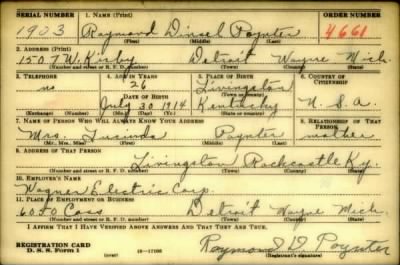 SERIAL NUMBER 1. NAME (Print) ORDER NUMBER
1903 Raymond Diesel Poynter 4661
(First) (Middle) (Last)
2. ADDRESS (Print)
1507 W. Kirby Detroit Wayne Mich.
(Number and street or R. F. D. number) (Town) (County) (State)
3. TELEPHONE 4. AGE IN YEARS 5. PLACE OF BIRTH 6. COUNTRY OF CITIZENSHIP
no 26 Livingston
DATE OF BIRTH (Town or county)
July 30 1914 Kentucky U. S. A.
(Exchange) (Number) (Mo.) (Day) (Yr.) (State or country)
7. NAME OF PERSON WHO WILL ALWAYS KNOW YOUR ADDRESS 8. RELATIONSHIP OF THAT PERSON
Mrs. Lucinda Poynter mother
(Mr., Mrs., Miss) (First) (Middle) (Last)
9. ADDRESS OF THAT PERSON
Livingston Rockcastle Ky.
(Number and street or R. F. D. number) (Town) (County) (State)
10. EMPLOYER'S NAME
Wagner Electric Corp.
11. PLACE OF EMPLOYMENT OR BUSINESS
6050 Cass Detroit Wayne Mich.
(Number and street or R. F. D. number) (Town) (County) (State)
I AFFIRM THAT I HAVE VERIFIED ABOVE ANSWERS AND THAT THEY ARE TRUE.
REGISTRATION CARD
D. S. S. Form 1 (over) 16—17105 Raymond D. Poynter
(Registrant's signature)